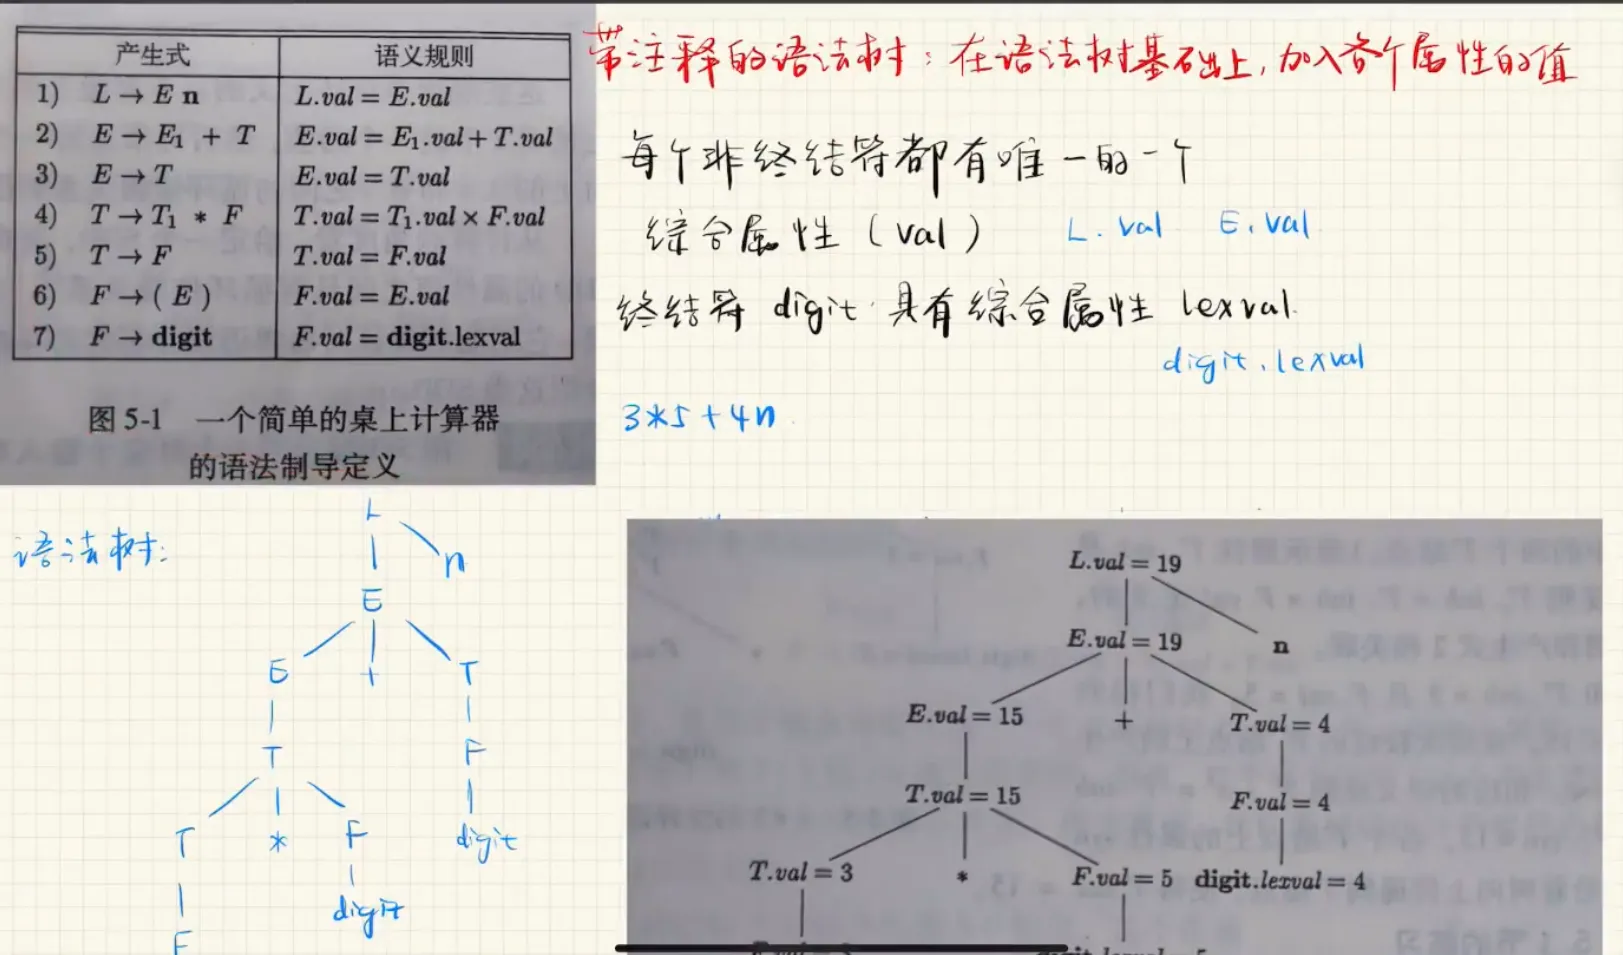 产生式 语义规则
1) L → E n L.val = E.val
2) E → E₁ + T E.val = E₁.val + T.val
3) E → T E.val = T.val
4) T → T₁ * F T.val = T₁.val × F.val
5) T → F T.val = F.val
6) F → ( E ) F.val = E.val
7) F → digit F.val = digit.lexval
图 5-1 一个简单的桌上计算器
的语法制导定义
带注释的语法树：在语法树基础上，加入各个属性的值
每个非终结符都有唯一的一个
综合属性（val） L.val E.val
终结符 digit 具有综合属性 lexval.
digit.lexval
3*5+4n
语法树:
L
n
E
E + T
T F
T * F digit
digit
F
L.val = 19
E.val = 19 n
E.val = 15 + T.val = 4
T.val = 15 F.val = 4
T.val = 3 * F.val = 5 digit.lexval = 4